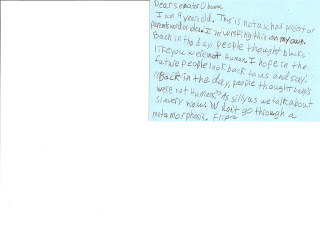 Dear senator Obama.
I am 9 years old. This is not a school project or
parents word or dear. I'm writing this on my own.
Back in the day, people thought blacks
like you were not human. I hope in the
future people look back to us and say,
"Back in the day, people thought baby's
were not humans." As silly as we talk about
slavery
We don't go through a
metamorphosis. Flip